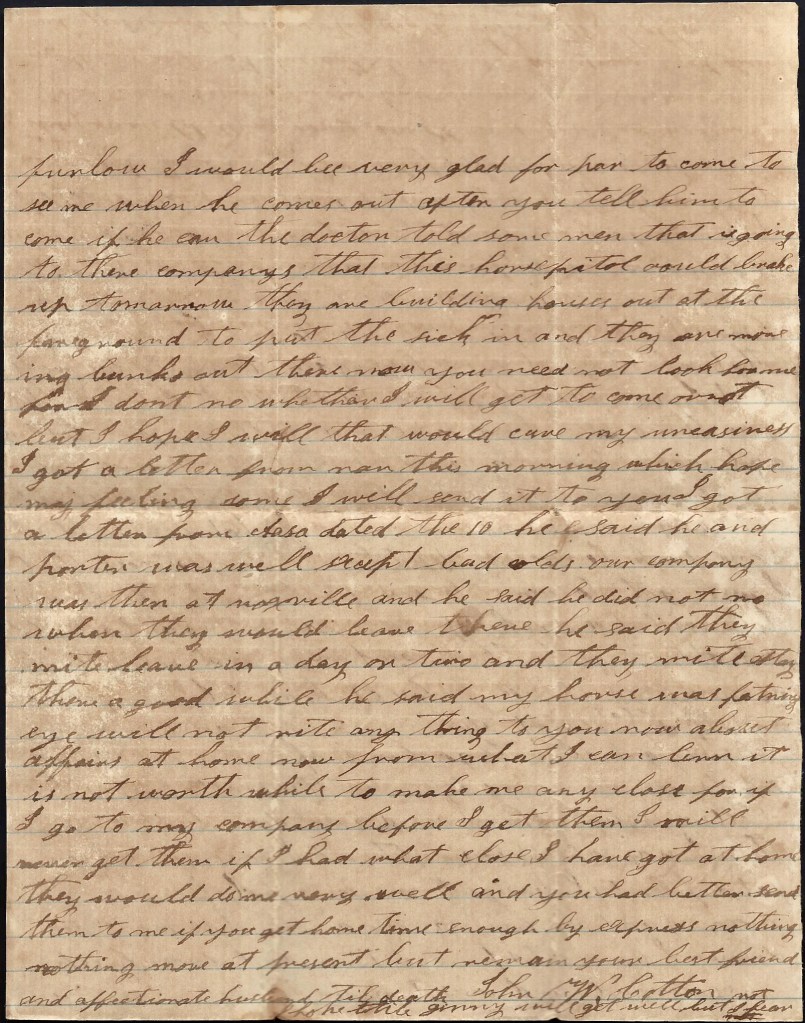 furlow I would bee very glad for par to come to
see me when he comes out after you tell him to
come if he can the doctor told some men that is going
to there companys that this horsepitol would brake
up tomarrow they are building houses out at the
fareground to put the sick in and they are move
ing bunks out there now you need not look for me
for I dont no whether I will get to come or not
but I hope I will that would cure my uneasiness
I got a letter from nan this morning which hope
my feeling some I will send it to you I got
a letter from asa dated the 10 he said he and
porter was well excep bad colds our company
was then at noxville and he said he did not no
when they would leave there he said they
mite leave in a day or two and they mite stay
there a good while he said my horse was fatning
will not rite any thing to you now about
affairs at home now from what I can lern it
is not worth while to make me any close for if
I go to my company before I get them I will
never get them if I had what close I have got at home
they would do me very well and you had better send
them to me if you get home time enough by express nothing
nothing more at present but remain your best friend
and affectionate husband til death John W. Cotton
I hope little ginny will get well but I fear not